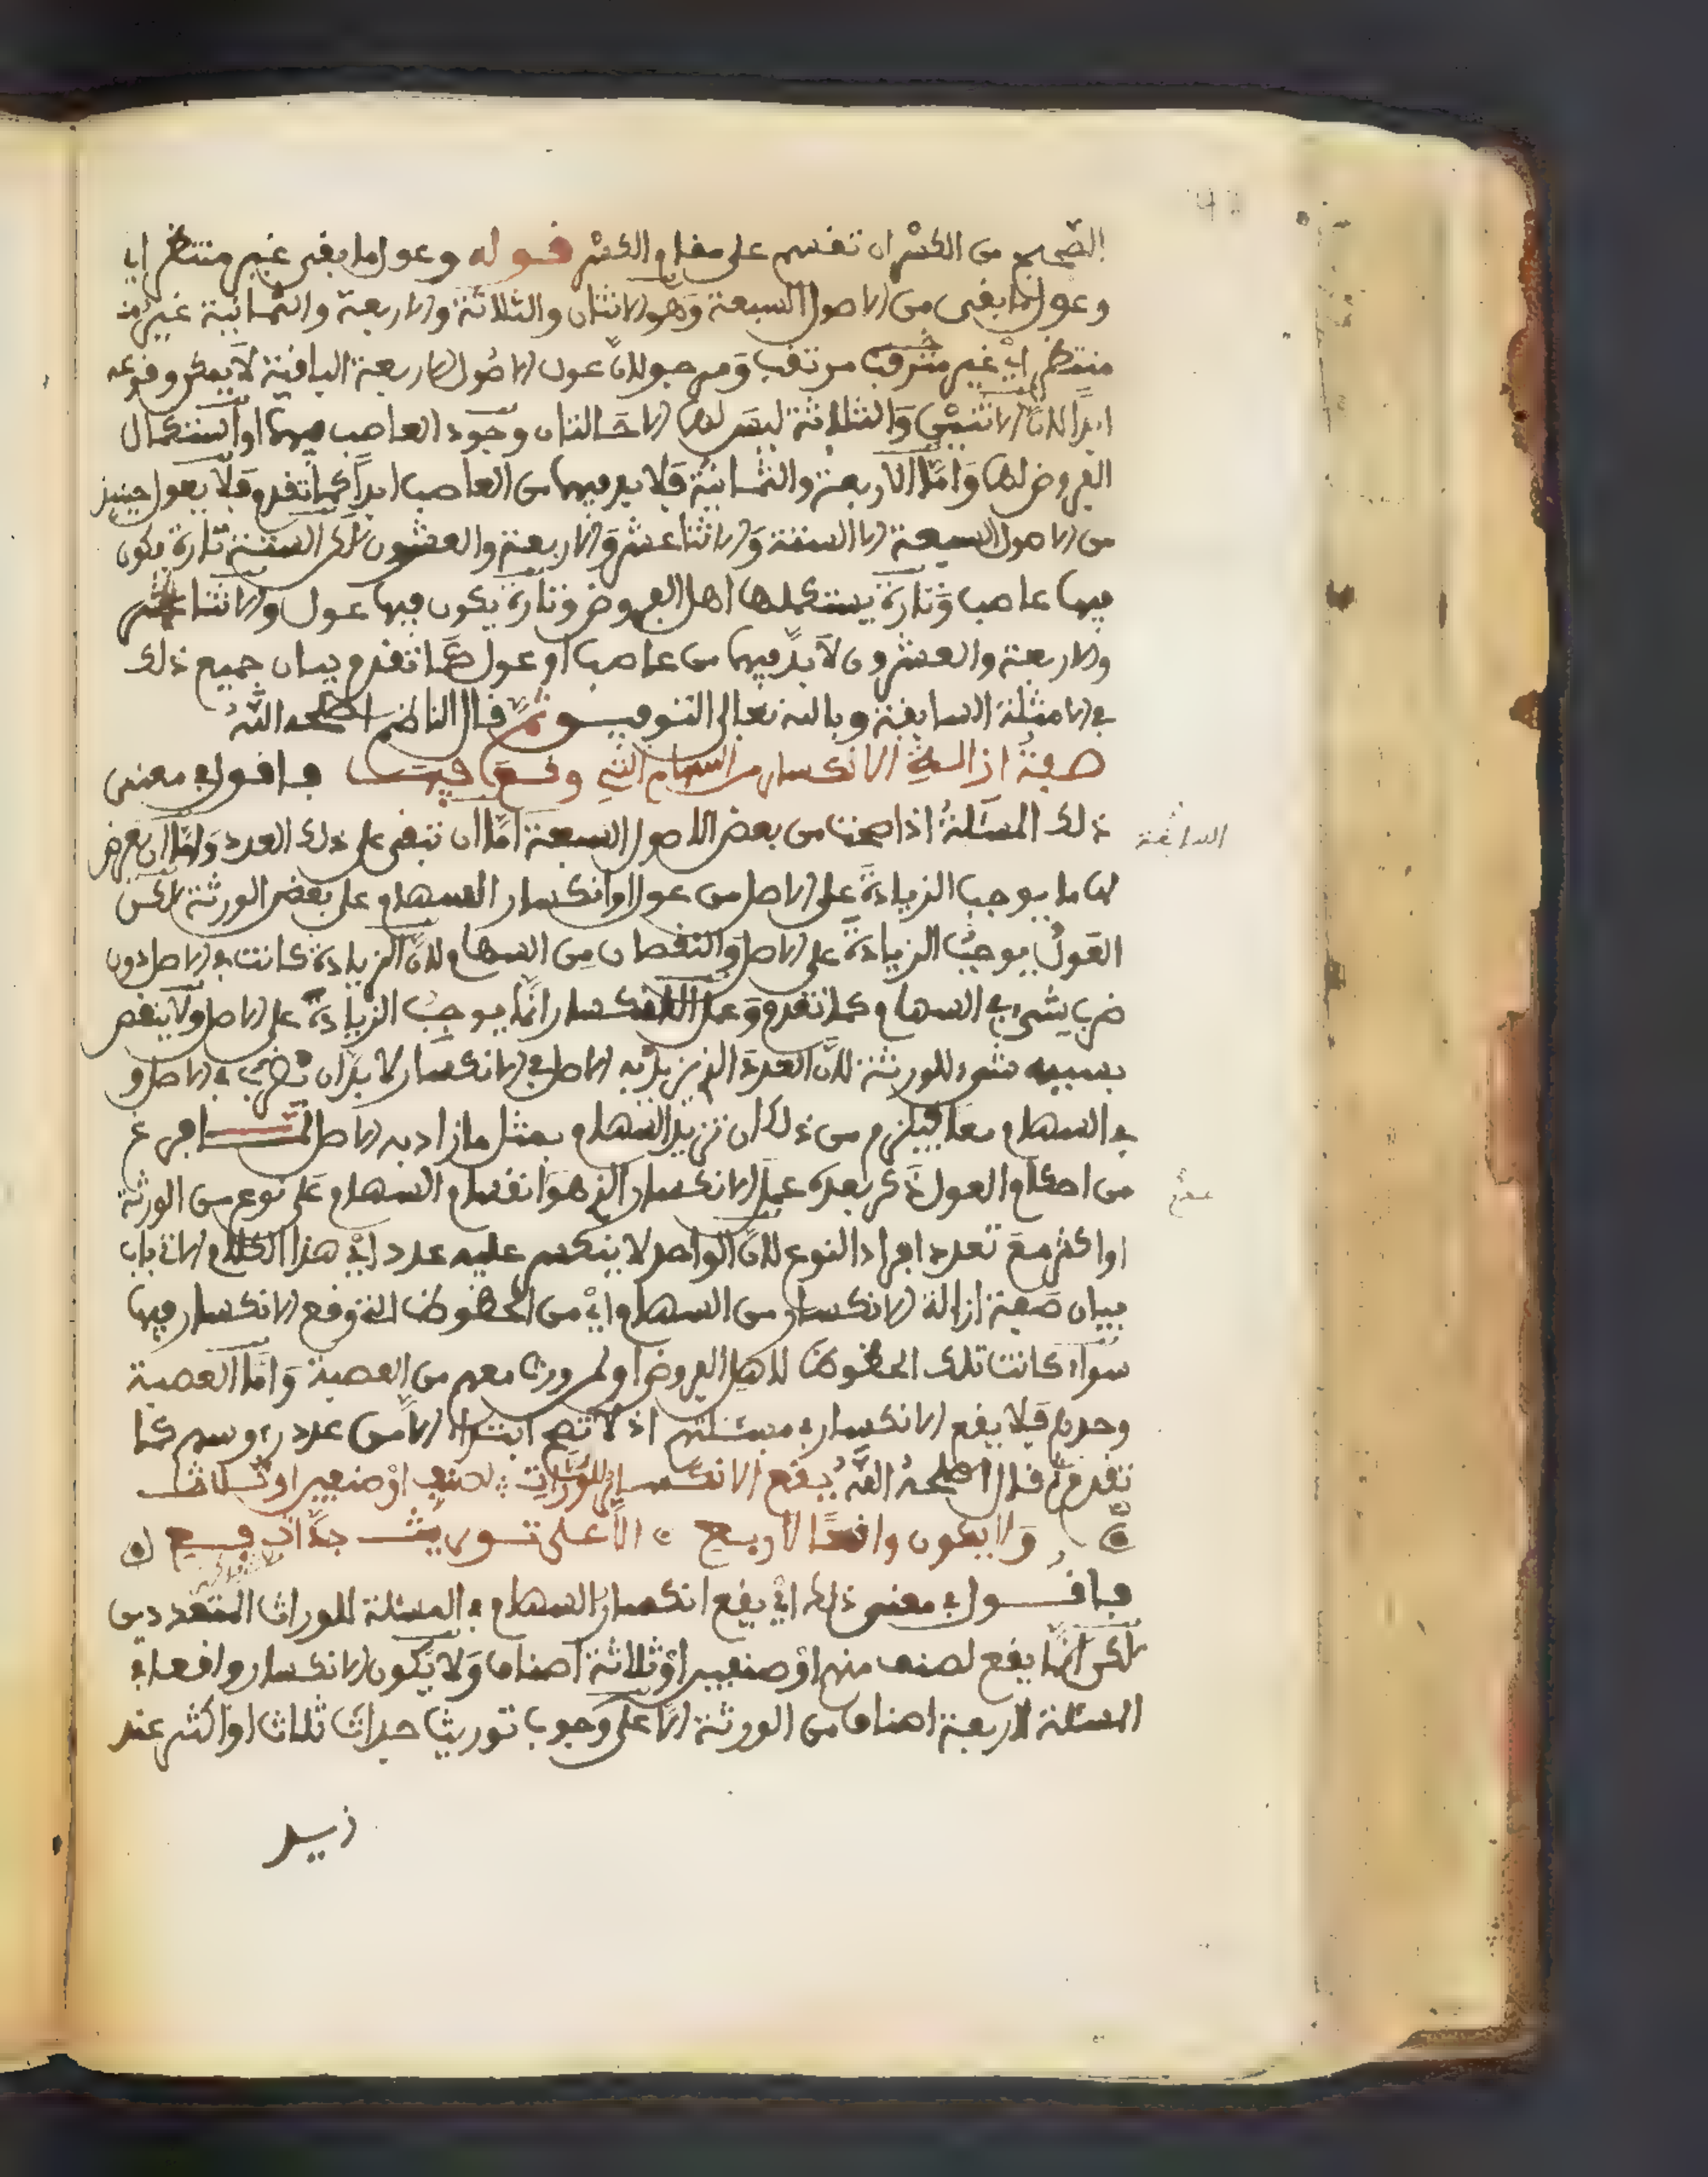 الصحيح من الكسر ان تقسم على مقام الكسر قوله وعول ما بقى غير منتظر اي
وعول ما بقى من الاصول السبعة وهو الاثنان والثلاثة والاربعة والثمانية غير
منتظر اي غير مترقب مرتقب ومرجو لانّ عول الاصول الاربعة الباقية لا يمكن وقوعه
ابدا لانّ الاثنين والثلاثة ليس لها الا حالتان وجود العاصب فيها او استكمال
الفروض لها وامّا الاربعة والثمانية فلا بد فيها من العاصب ابدا كما تقدم فلا يعول حينئذ
من الاصول السبعة الا الستة والاثنا عشر والاربعة والعشرون لكن الستة تارة يكون
فيها عاصب وتارة يستكملها اهل الفروض وتارة يكون فيها عول والاثنا عشر
والاربعة والعشرون لا بدّ فيها من عاصب او عول كما تقدم بيان جميع ذلك
في الامثلة السابقة وبالله تعالى التوفيق ثمّ قال الناظم اصلحه اللّهُ
صفةُ ازالةِ الانكسار من السهام التي وقع فيها فاقول في معنى
ذلك المسئلة اذا صحت من بعض الاصول السبعة امّا ان تبقى على ذلك العدد وامّا ان يعرض
السابقة
لها ما يوجب الزيادة على الاصل من عول او انكسار السهام على بعض الورثة لكن
العول يوجب الزيادة على الاصل والنقصان من السهام لانّ الزيادة كانت في الاصل دون
ضرب شيء في السهام كما تقدم وعمل الانكسار انّما يوجب الزيادة على الاصل ولا ينقص
بسببه شيء للورثة لانّ العدد الذي نزيد به الاصل في الانكسار لا بد ان يضرب في الاصل و
في السهام معا فيلزم من ذلك ان تزيد السهام بمثل ما زاد به الاصل لمّا فرغ
من احكام العول ذكر بعده عمل الانكسار الذي هو انقسام السهام على نوع من الورثة
عدم
او اكثر مع تعدد افراد النوع لانّ الواحد لا ينكسر عليه عدد اي هذا الكلام الاتي باب
بيان صفة ازالة الانكسار من السهام اي من الحظوظ التي وقع الانكسار فيها
سواء كانت تلك الحظوظ لاهل الفروض او لمن ورث معهم من العصبة وامّا العصبة
وحدهم فلا يقع الانكسار في مسئلتهم اذ لا تصح ابتداء الا من عدد رءوسهم كما
تقدم ثم قال اصلحه اللّه يقع الانكسار للورّاث لصنف او صنفين او ثلاث
ولا يكون واقعا لاربع الّا على توريث جدّات فع
فاقول في معنى ذلك اي يقع انكسار السهام في المسئلة للوراث المتعددين
لكن انّما يقع لصنف منهم او صنفين او ثلاثة اصناف ولا يكون الانكسار واقعا في
المسئلة لاربعة اصناف من الورثة الا على وجوب توريث جدات ثلاث او اكثر عند
زيد